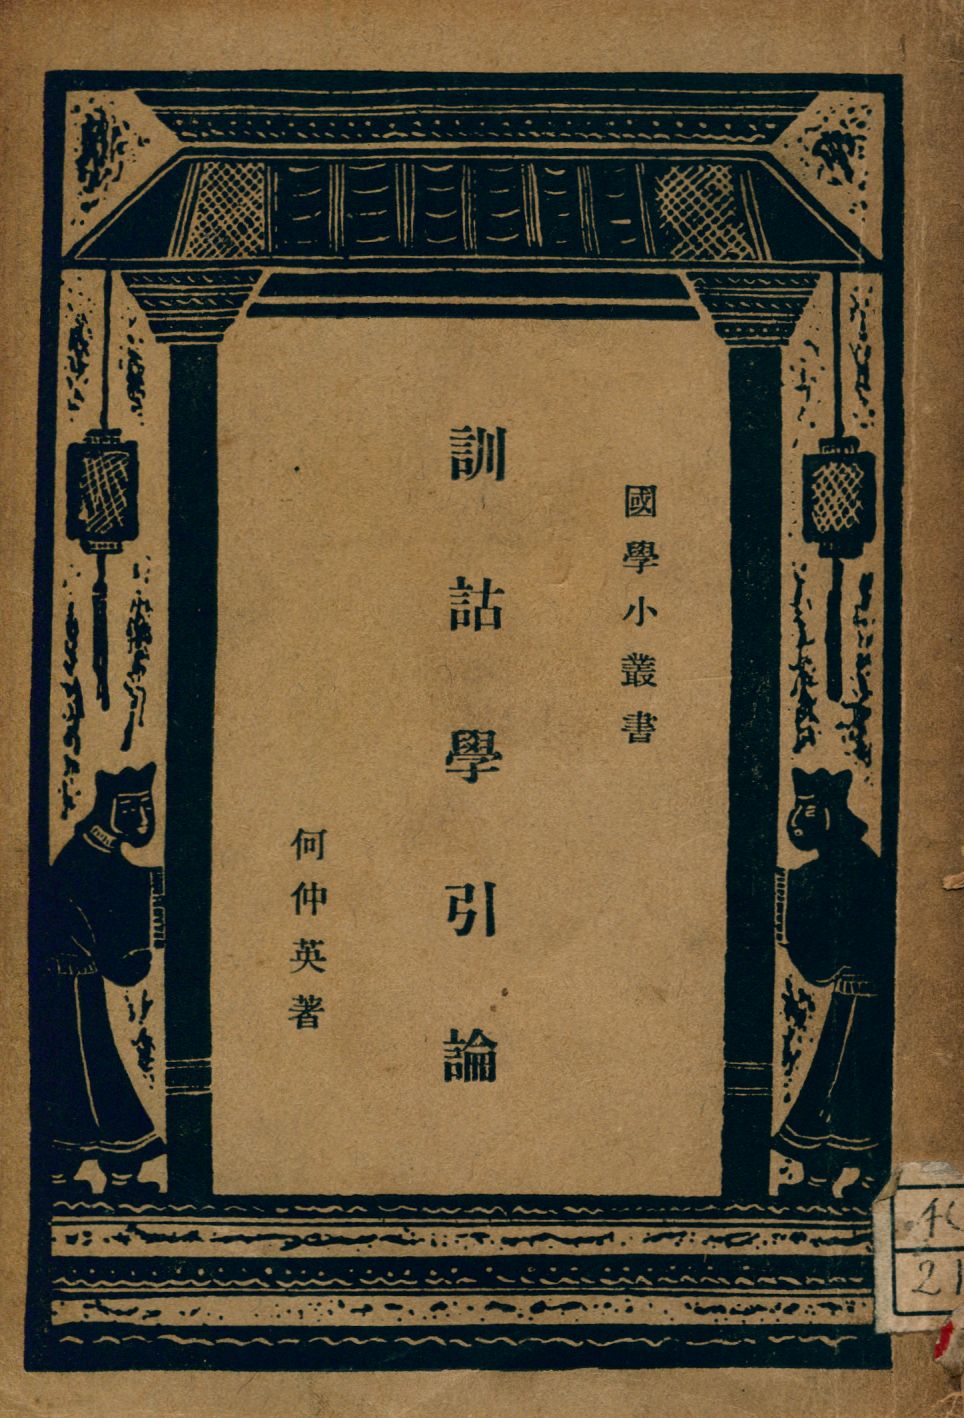 國學小叢書
訓詁學引論
何仲英著